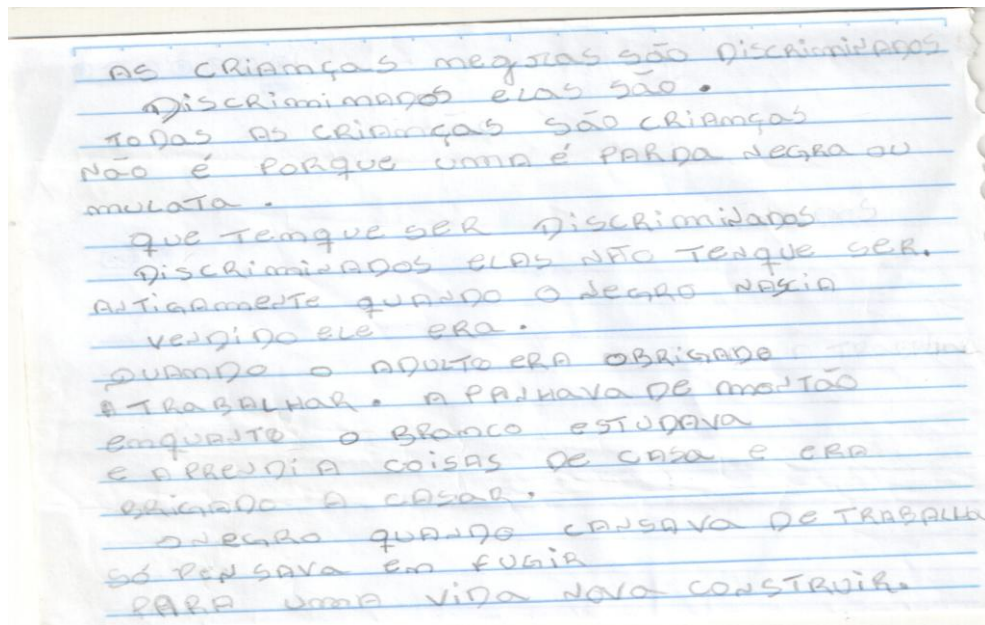 AS CRIANÇAS NEGRAS SÃO DISCRIMINADOS
DISCRIMINADOS ELAS SÃO.
TODAS AS CRIANÇAS SÃO CRIANÇAS
NÃO É PORQUE UMA É PARDA NEGRA OU
MULATA.
QUE TEMQUE SER DISCRIMINADOS
DISCRIMINADOS ELAS NÃO TENQUE SER.
ANTIGAMENTE QUANDO O NEGRO NASCIA
VENDIDO ELE ERA.
QUANDO O ADULTO ERA OBRIGADO
A TRABALHAR. APANHAVA DE MONTÃO
ENQUANTO O BRANCO ESTUDAVA
E APRENDIA COISAS DE CASA E ERA
BRIGADO A CASAR.
ONEGRO QUANDO CANSAVA DE TRABALHA
SÓ PENSAVA EM FUGIR
PARA UMA VIDA NOVA CONSTRUIR.